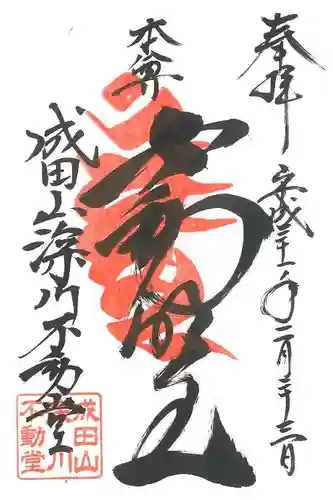 奉拝
平成二十一年二月二十二日
本尊
不動明王
成田山深川不動堂
成田山
深川
不動堂